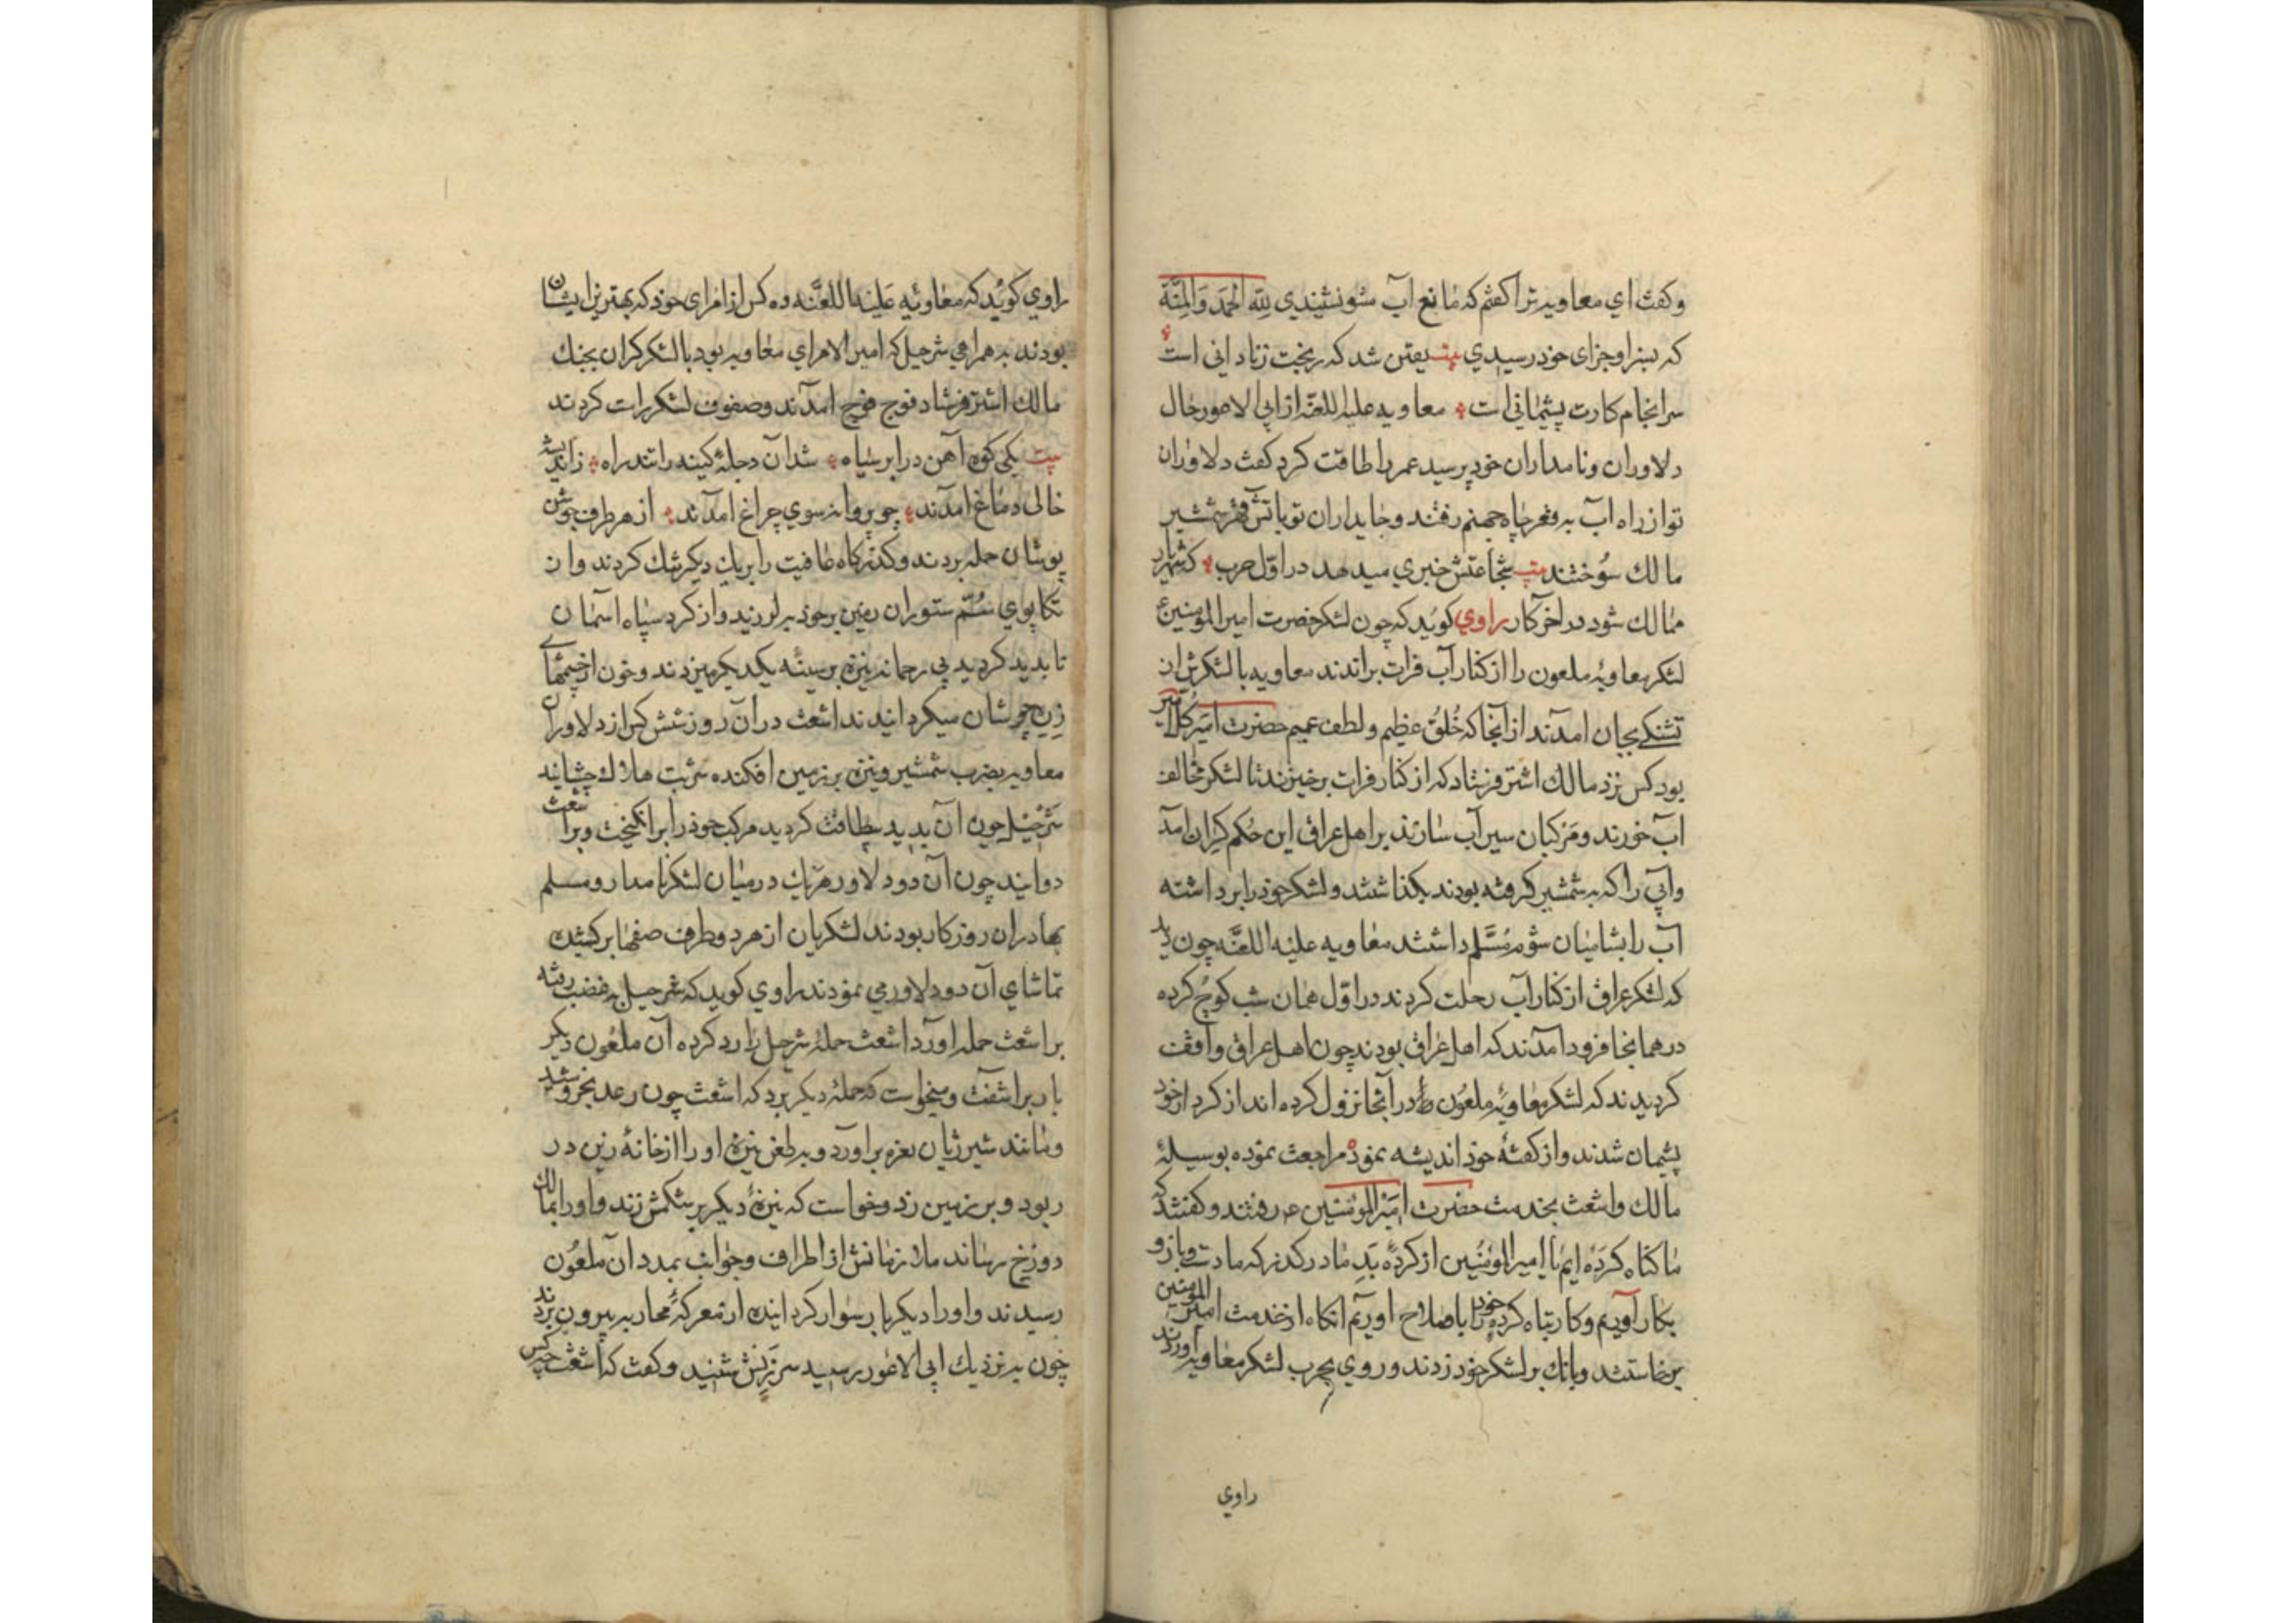 وکفت ای معاویه ترا کفتم که مانع آب مشو نشنیدی لله الحمد والمنة
که بسزا وجزای خود رسیدی بیت یقین شد که ریخت زنادانی است
سرانجام کارت پشیمانی است معاویه علیه اللعنه از ابی الاعور حال
دلاوران ونامداران خود پرسید عمر را طاقت کرد کفت دلاوران
تو از راه آب به قعر چاه جهنم رفتند وجایداران تو باتش قهر شمشیر
مالك سوختند بیت شجاعتش خبری میدهد در اول حرب که شهریار
ممالك شود در اخر کار راوی کوید که چون لشکر حضرت امیر المومنین ع
لشکر معاویۀ ملعون را از کنار آب فرات براندند معاویه با لشکرش از
تشنکی بجان امدند از آنجا که خُلق عظیم ولطف عمیم حضرت امیر کل امیر
بود کس نزد مالك اشتر فرستاد که از کنار فرات برخیزند تا لشکر مخالف
اب خورند ومرکبان سیر آب سازند بر اهل عراق این حکم کران امد
وابی را که به شمشیر کرفته بودند بکذاشتند ولشکر خود را برداشته
آب را بشامیان شوم مسلم داشتند معاویه علیه اللعنه چون دید
که لشکر عراق از کنار آب رحلت کردند در اول همان شب کوچ کرده
در همانجا فرود آمدند که اهل عراق بودند چون اهل عراق واقف
کردیدند که لشکر معاویۀ ملعون در آنجا نزول کرده اند از کرد از خود
پشیمان شدند واز کفتۀ خود اندیشه نموده مراجعت نموده بوسیلۀ
مالك واشعث بخدمت حضرت امیر المومنین ع رفتند وکفتند که
ما کناه کرده ایم یا امیر المومنین از کردۀ بد ما در کذر که ما دست وبازو
بکار آوریم وکار تباه کردۀ خود را باصلاح اوریم انکاه از خدمت امیر المومنین
برخاستند وبانك بر لشکر خود زدند وروی بحرب لشکر معاویه آورند
راوی
راوی کوید که معاویه علیه اللعنه ده کس از امرای خود که بهترین ایشان
بودند به همراهی شرحیل که امیر الامرای معاویه بود با لشکر کران بجنك
مالك اشتر فرستاد فوج فوج امدند وصفوف لشکر راست کردند
بیت یکی کوه آهن در ابر سیاه شد آن دجلۀ کینه را تند راه
خالی دماغ امدند چو پروانه سوی چراغ امدند از هر طرف جوشن
پوشان حمله بردند وکذرکاه عافیت را بر یك دیکر تنك کردند واز
تکاپوی سم ستوران زمین بر خود بلرزید واز کرد سپاه آسمان
ناپدید کردید بی رحمانه نیزه بر سینه یکدیکر میزدند وخون از چشمهای
زره جوشان میکردانیدند اشعث در آن روز شش کس از دلاوران
معاویه بضرب شمشیر ونیزه بر زمین افکنده شربت هلاك چشانید
شرحیل چون آن بدید بیطاقت کردید مرکب خود را برانکیخت وبر اشعث
دوانید چون آن دو دلاور هر یك در میان لشکر نامدار ومسلم
بهادران روزکار بودند لشکریان از هر دو طرف صفها بر کشیده
تماشای آن دو دلاور می نمودند راوی کوید که شرحیل به غضب رفته
بر اشعث حمله اورد اشعث حملۀ شرحیل را رد کرده آن ملعون دیکر
بار براشفت ومیخواست که حملۀ دیکر برد که اشعث چون رعد بخروشید
ومانند شیر ژیان نعره براورد وبه طعن نیزه او را از خانۀ زین در
ربود وبر زمین زد وخواست که نیزۀ دیکر بر شکمش زند واو را بمالك
دوزخ رساند ملازمانش از اطراف وجوانب بمدد آن ملعون
رسیدند واو را دیکر بار سوار کردانیده از معرکۀ محاربه بیرون بردند
چون به نزدیك ابی الاعور رسید سرزنش شنید وکفت که اشعث چه کس